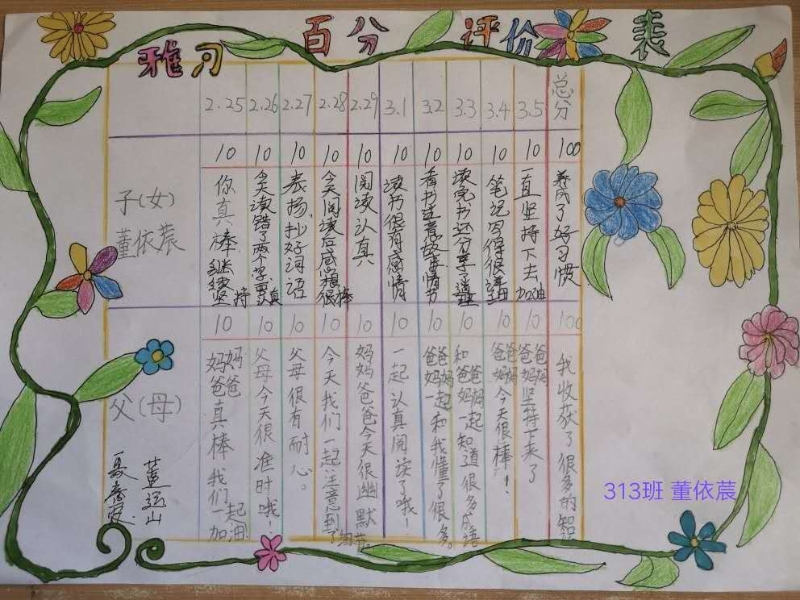 雅习 百分 评价 表
2.25 2.26 2.27 2.28 2.29 3.1 3.2 3.3 3.4 3.5 总分
10 10 10 10 10 10 10 10 10 10 100
子(女)
董依莀
你真棒继续坚持
今天读错了两个字要认真
表扬,抄好词语
今天阅读后感想很棒
阅读认真
读书很有感情
看书还意故事情节
读完书还分享了
笔记写得很详细
一直坚持下去加油
养成了好习惯
10 10 10 10 10 10 10 10 10 10 100
父(母)
妈妈爸爸真棒我们一起加油
父母今天很准时哦!
父母很有耐心。
今天我们一起注意到了细节。
妈妈爸爸今天很幽默
一起认真阅读了哦!
爸爸妈妈一起和我懂了很多。
和爸爸妈妈一起知道很多成语
爸爸妈妈今天很棒!!
爸爸妈妈坚持下来了
我收获了很多的知识
董运山
313班 董依莀